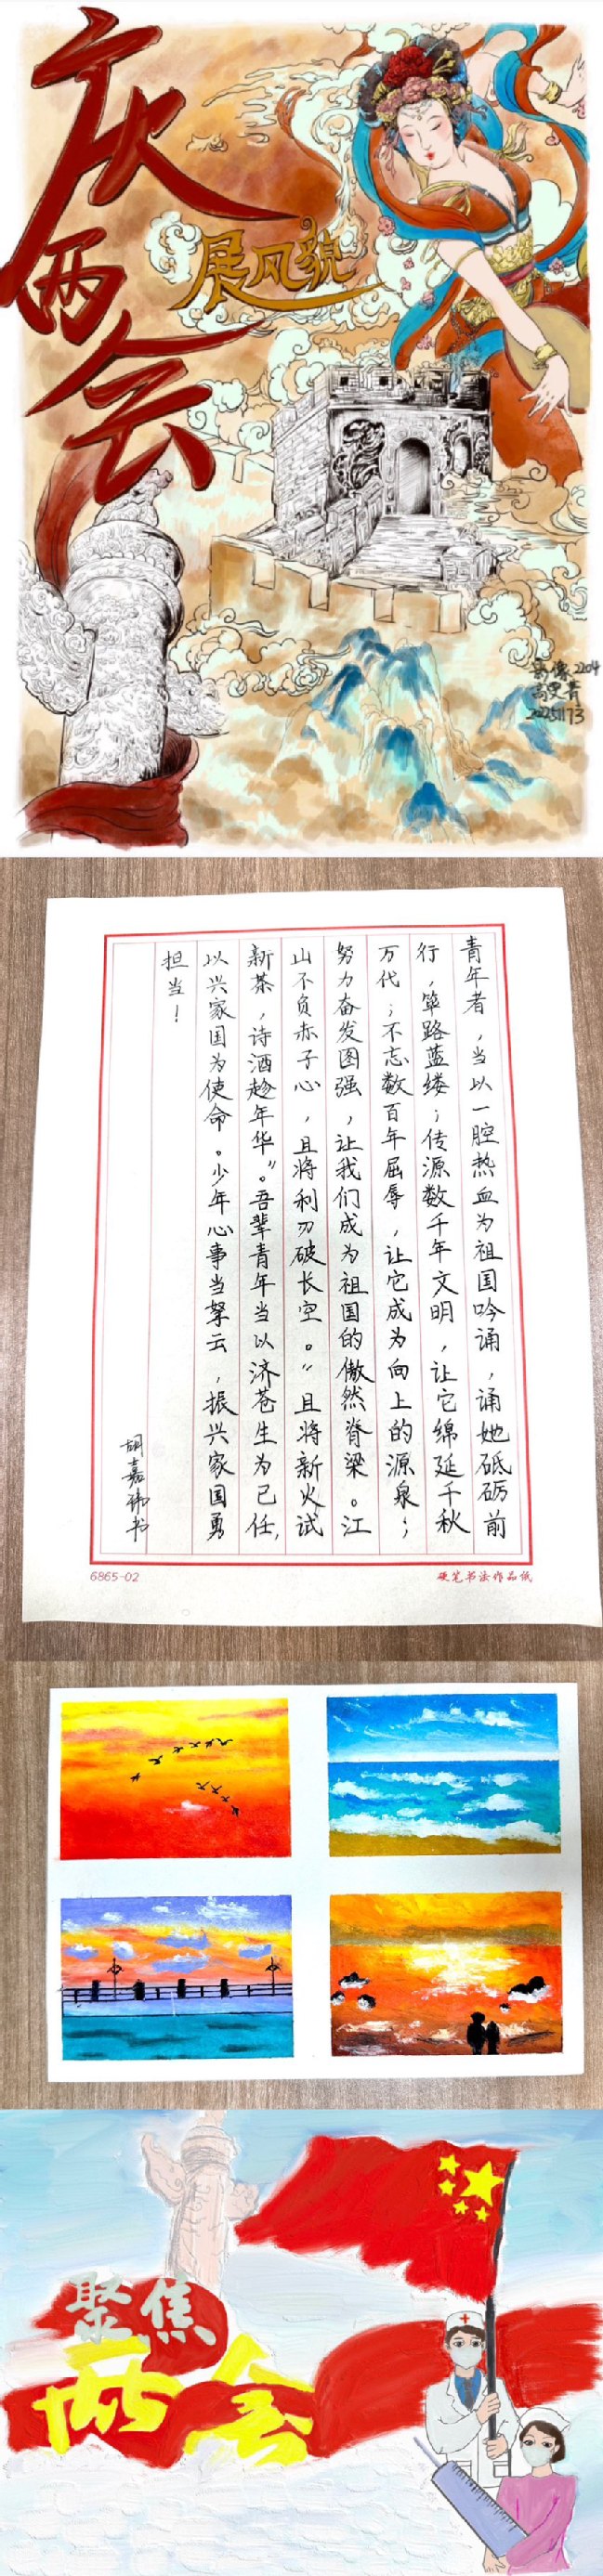 庆两会
展风貌
2204
青年者，当以一腔热血为祖国吟诵，诵她砥砺前
行，筚路蓝缕；传源数千年文明，让它绵延千秋
万代；不忘数百年屈辱，让它成为向上的源泉；
努力奋发图强，让我们成为祖国的傲然脊梁。江
山不负赤子心，且将利刃破长空。“且将新火试
新茶，诗酒趁年华”。吾辈青年当以济苍生为己任，
以兴家国为使命。少年心事当拏云，振兴家国勇
担当！
胡嘉祎书
6865-02
硬笔书法作品纸
聚焦
两会